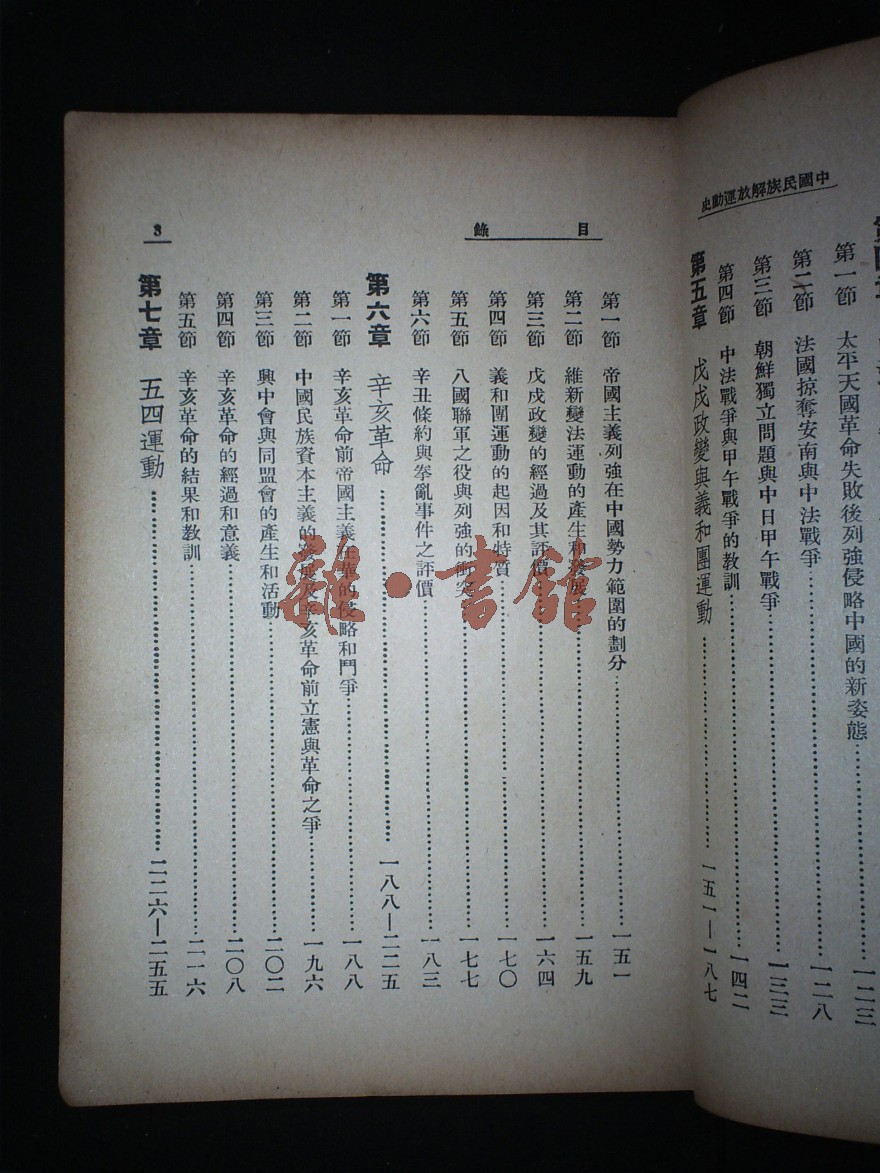 中國民族解放運動史
第一節 太平天國革命失敗後列強侵略中國的新姿態……一二三
第二節 法國掠奪安南與中法戰爭……一二八
第三節 朝鮮獨立問題與中日甲午戰爭……一三三
第四節 中法戰爭與甲午戰爭的教訓……一四二
第五章 戊戌政變與義和團運動……一五一—一八七
目錄
3
第一節 帝國主義列強在中國勢力範圍的劃分……一五一
第二節 維新變法運動的產生和發展……一五九
第三節 戊戌政變的經過及其評價……一六四
第四節 義和團運動的起因和特質……一七〇
第五節 八國聯軍之役與列強的衝突……一七七
第六節 辛丑條約與拳亂事件之評價……一八三
第六章 辛亥革命……一八八—二二五
第一節 辛亥革命前帝國主義在華的侵略和鬥爭……一八八
第二節 中國民族資本主義的發展及辛亥革命前立憲與革命之爭……一九六
第三節 興中會與同盟會的產生和活動……二〇二
第四節 辛亥革命的經過和意義……二〇八
第五節 辛亥革命的結果和教訓……二一六
第七章 五四運動……二二六—二五五
雜·書館